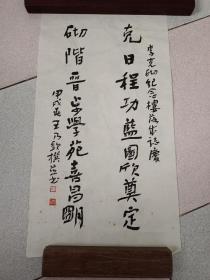 李克砌纪念楼落成誌慶
克日程功藍圖欣奠定
砌階晉步學苑喜昌明
甲戌夏王乃欽撰並書